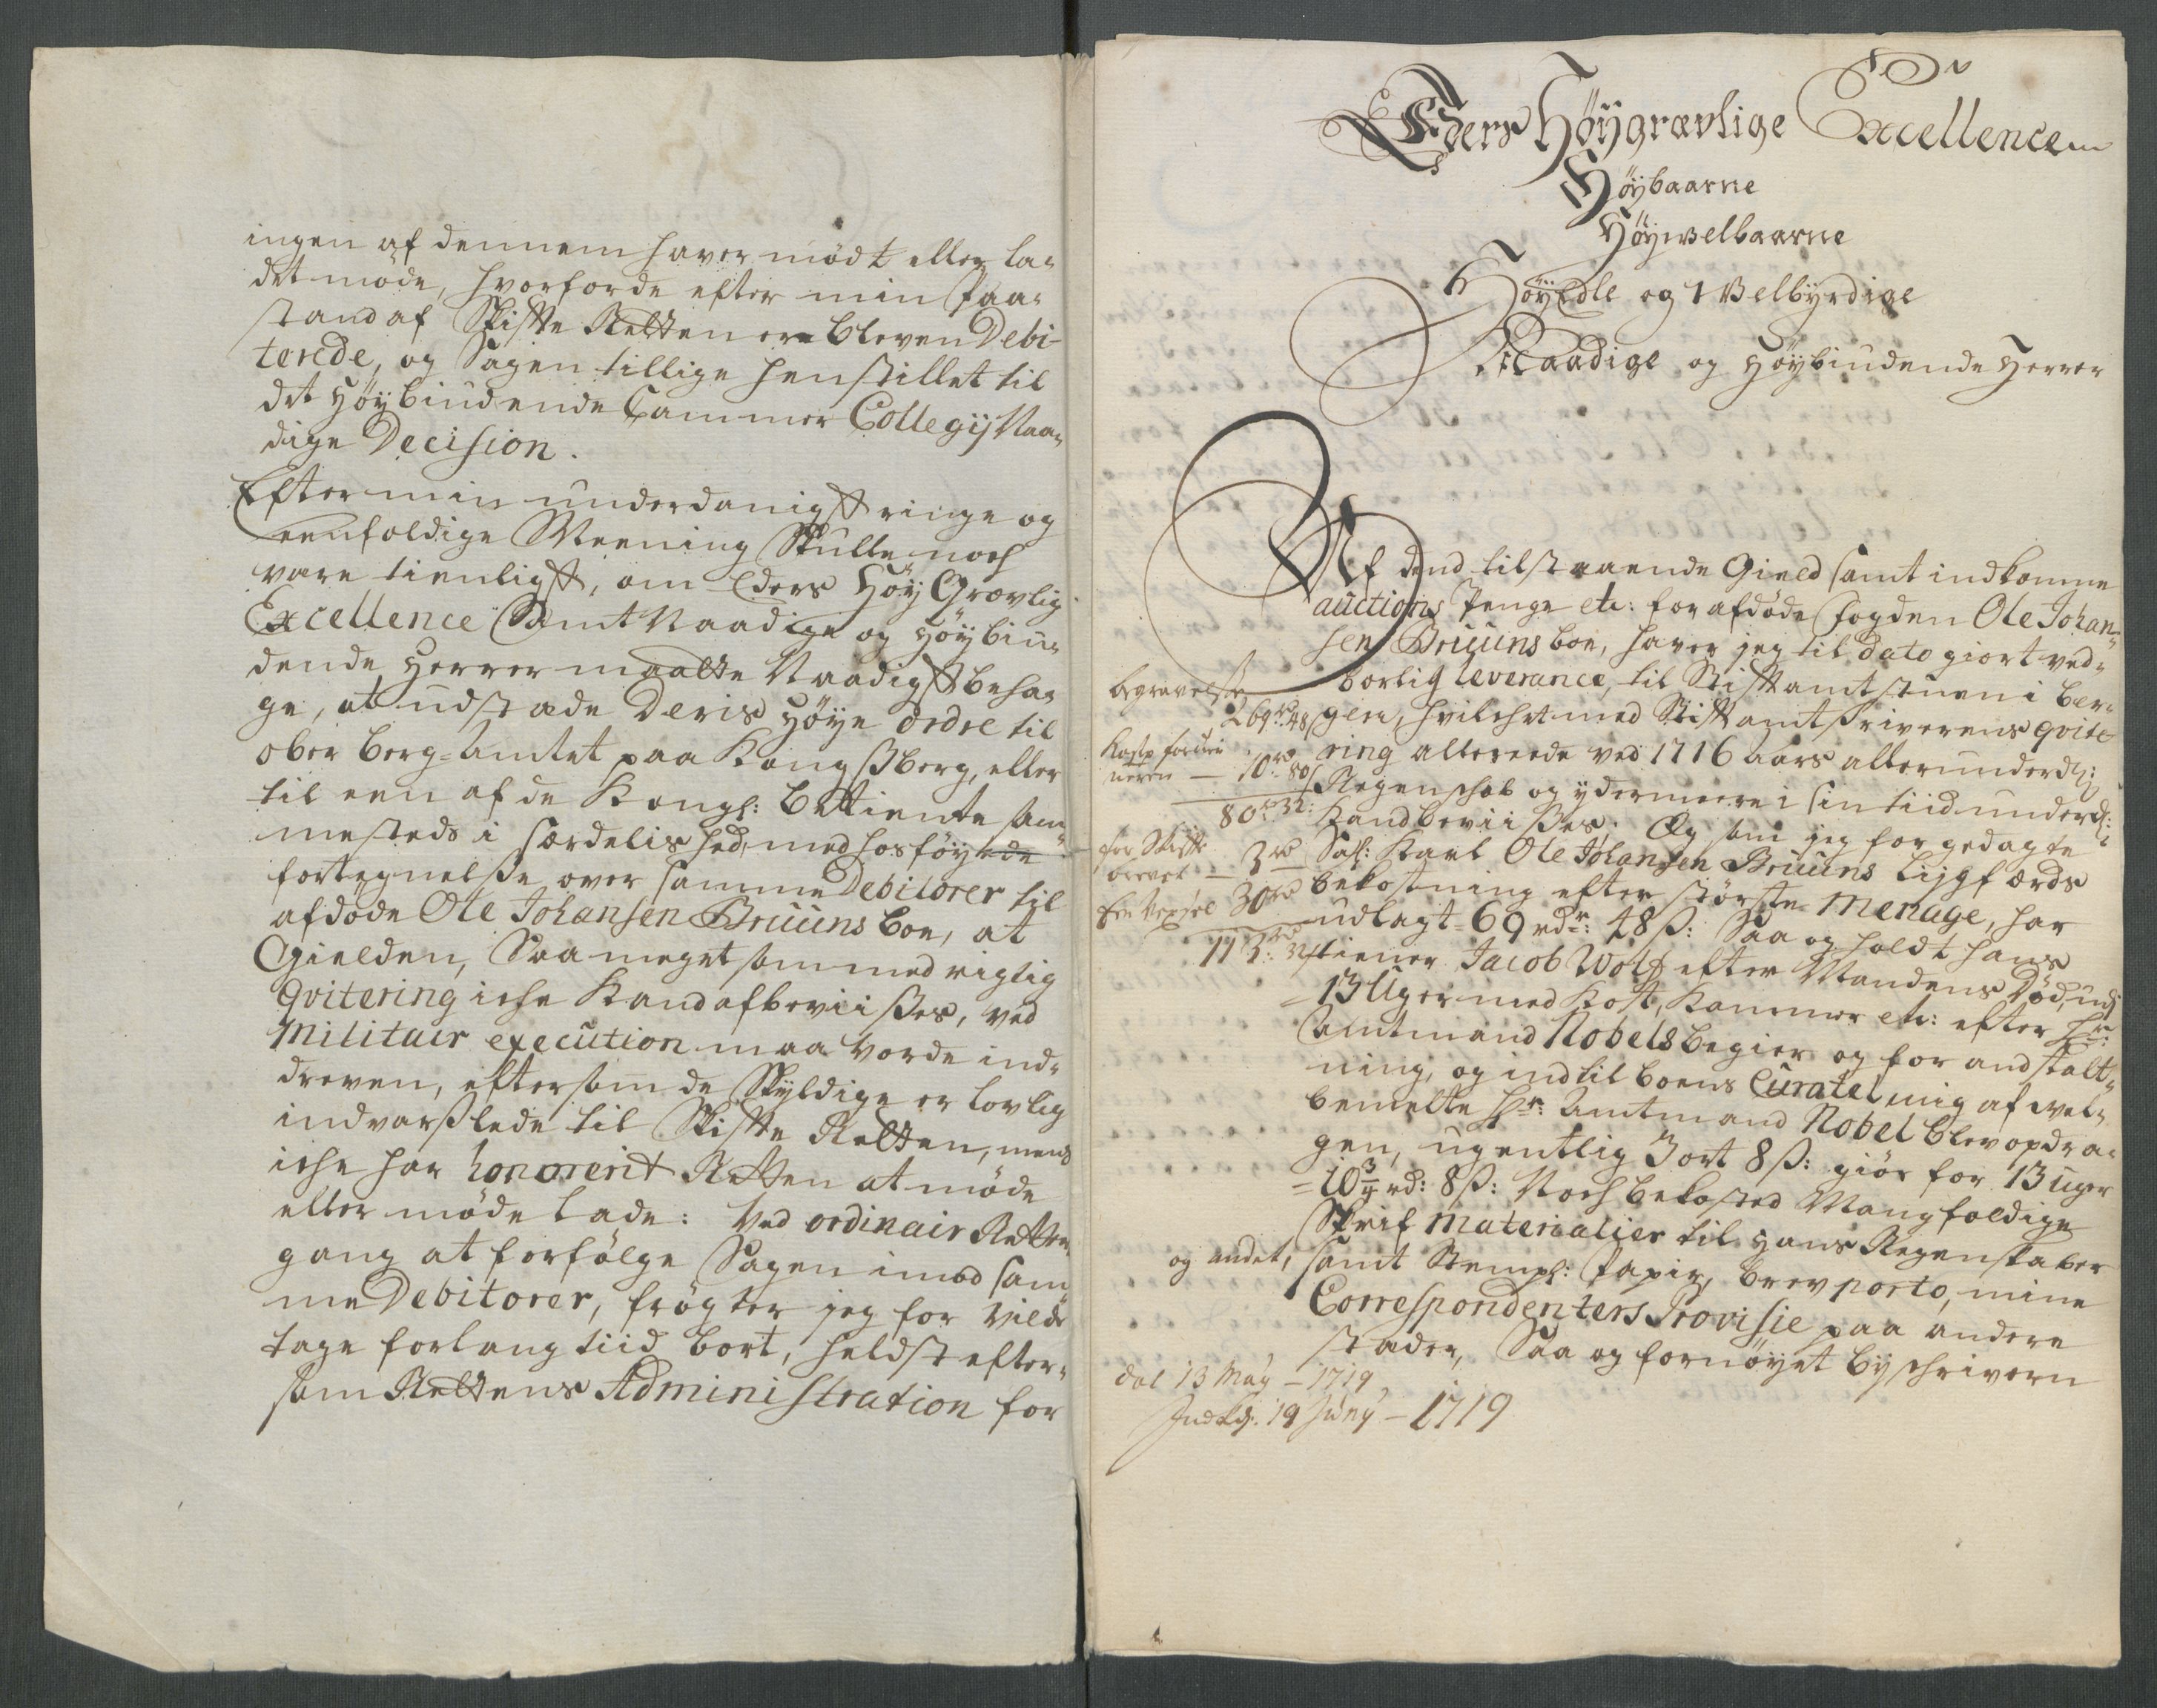 ingen af dennem haver mödt eller la-
det möde, hvorfor de efter min Paa-
stand af Skifte Retten ere bleven Debi-
terede, og Sagen tillige henstillet til
det Höybiudende Cammer Collegij Naa-
dige Decision.
Efter min underdanigst ringe og
eenfoldige Meening Skulle noch
være tienligst, om Eders Höy Grævlig
Excellence Samt Naadige og Höybiu-
dende Herrer maatte Naadigst beha-
ge, at udstæde Deris Höye ordre til
ober Berg-Amtet paa Kongsberg, eller
til een af de Kongl: Bettiente sam-
mesteds i særdelished, med hosföyede
fortegnelsse over samme Debitorer til
afdöde Ole Johansen Bruuns boe, at
Gielden, Saa meget som med rigtig
Qvitering iche Kand afbeviisses, ved
Militair execution maa Vorde ind-
dreven, eftersom de Skyldige er lovlig
indvarsslede til Skifte Retten, mens
iche har honorerit Retten at möde
eller möde lade: Ved ordinair Retter-
gang at forfölge Sagen imod sam-
me Debitorer, frögter jeg for vilde
tage for lang tiid bort, heldst efter-
som Rettens Administration for
Eders Höygrævlige Excellence
Höybaarne
Höywelbaarne
HöyEdle og Welbyrdige
Naadige og Höybiudende Herrer
Af dend tilstaaende Gield samt indkomne
auctions Penge etc: for afdöde fogden Ole Johan-
sen Bruuns boe, haver jeg til dato giort ved-
borlig leverance, til Stiftamtstuen i Ber-
gen, hvilchet med Stiftamtskriverens qvite-
ring allereede ved 1716 aars allerunderd:
Regenschab og ydermeere i sin tiid underd:
Kand beviisses; Og som jeg for gedagte
Sal: Karl Ole Johansen Bruuns Ligfærds
bekostning efter störste Menage, har
udlagt 69 rdr: 48 ß: Saa og holdt hans
tiener Jacob Wolf efter Mandens Död, udj
13 Uger med Kost, Kammer etc: efter Hr:
Amtmand Nobels begier og for andstalt-
ning, og indtil boens Curatel mig af vel-
bemelte Hr: Amtmand Nobel blev opdra-
gen, ugentlig 3 ort 8 ß: giör for 13 uger
= 10¾ rd: 8 ß: Noch bekosted Mangfoldige
Skrif Materialier til Hans Regenskaber
og andet, samt Stempl: Papir, brevporto, mine
Correspondenters Provisie paa andere
stæder, Saa og fornöyet byschriveren
begravelsse
69 rd 48 ß
Kost foruri
neren — 10 rd 80 ß
80 rd 32:
for Skifte
brevet — 3 rd
30 rd
113: 32
dat 13 May — 1719
Indk. 19 Juny — 1719